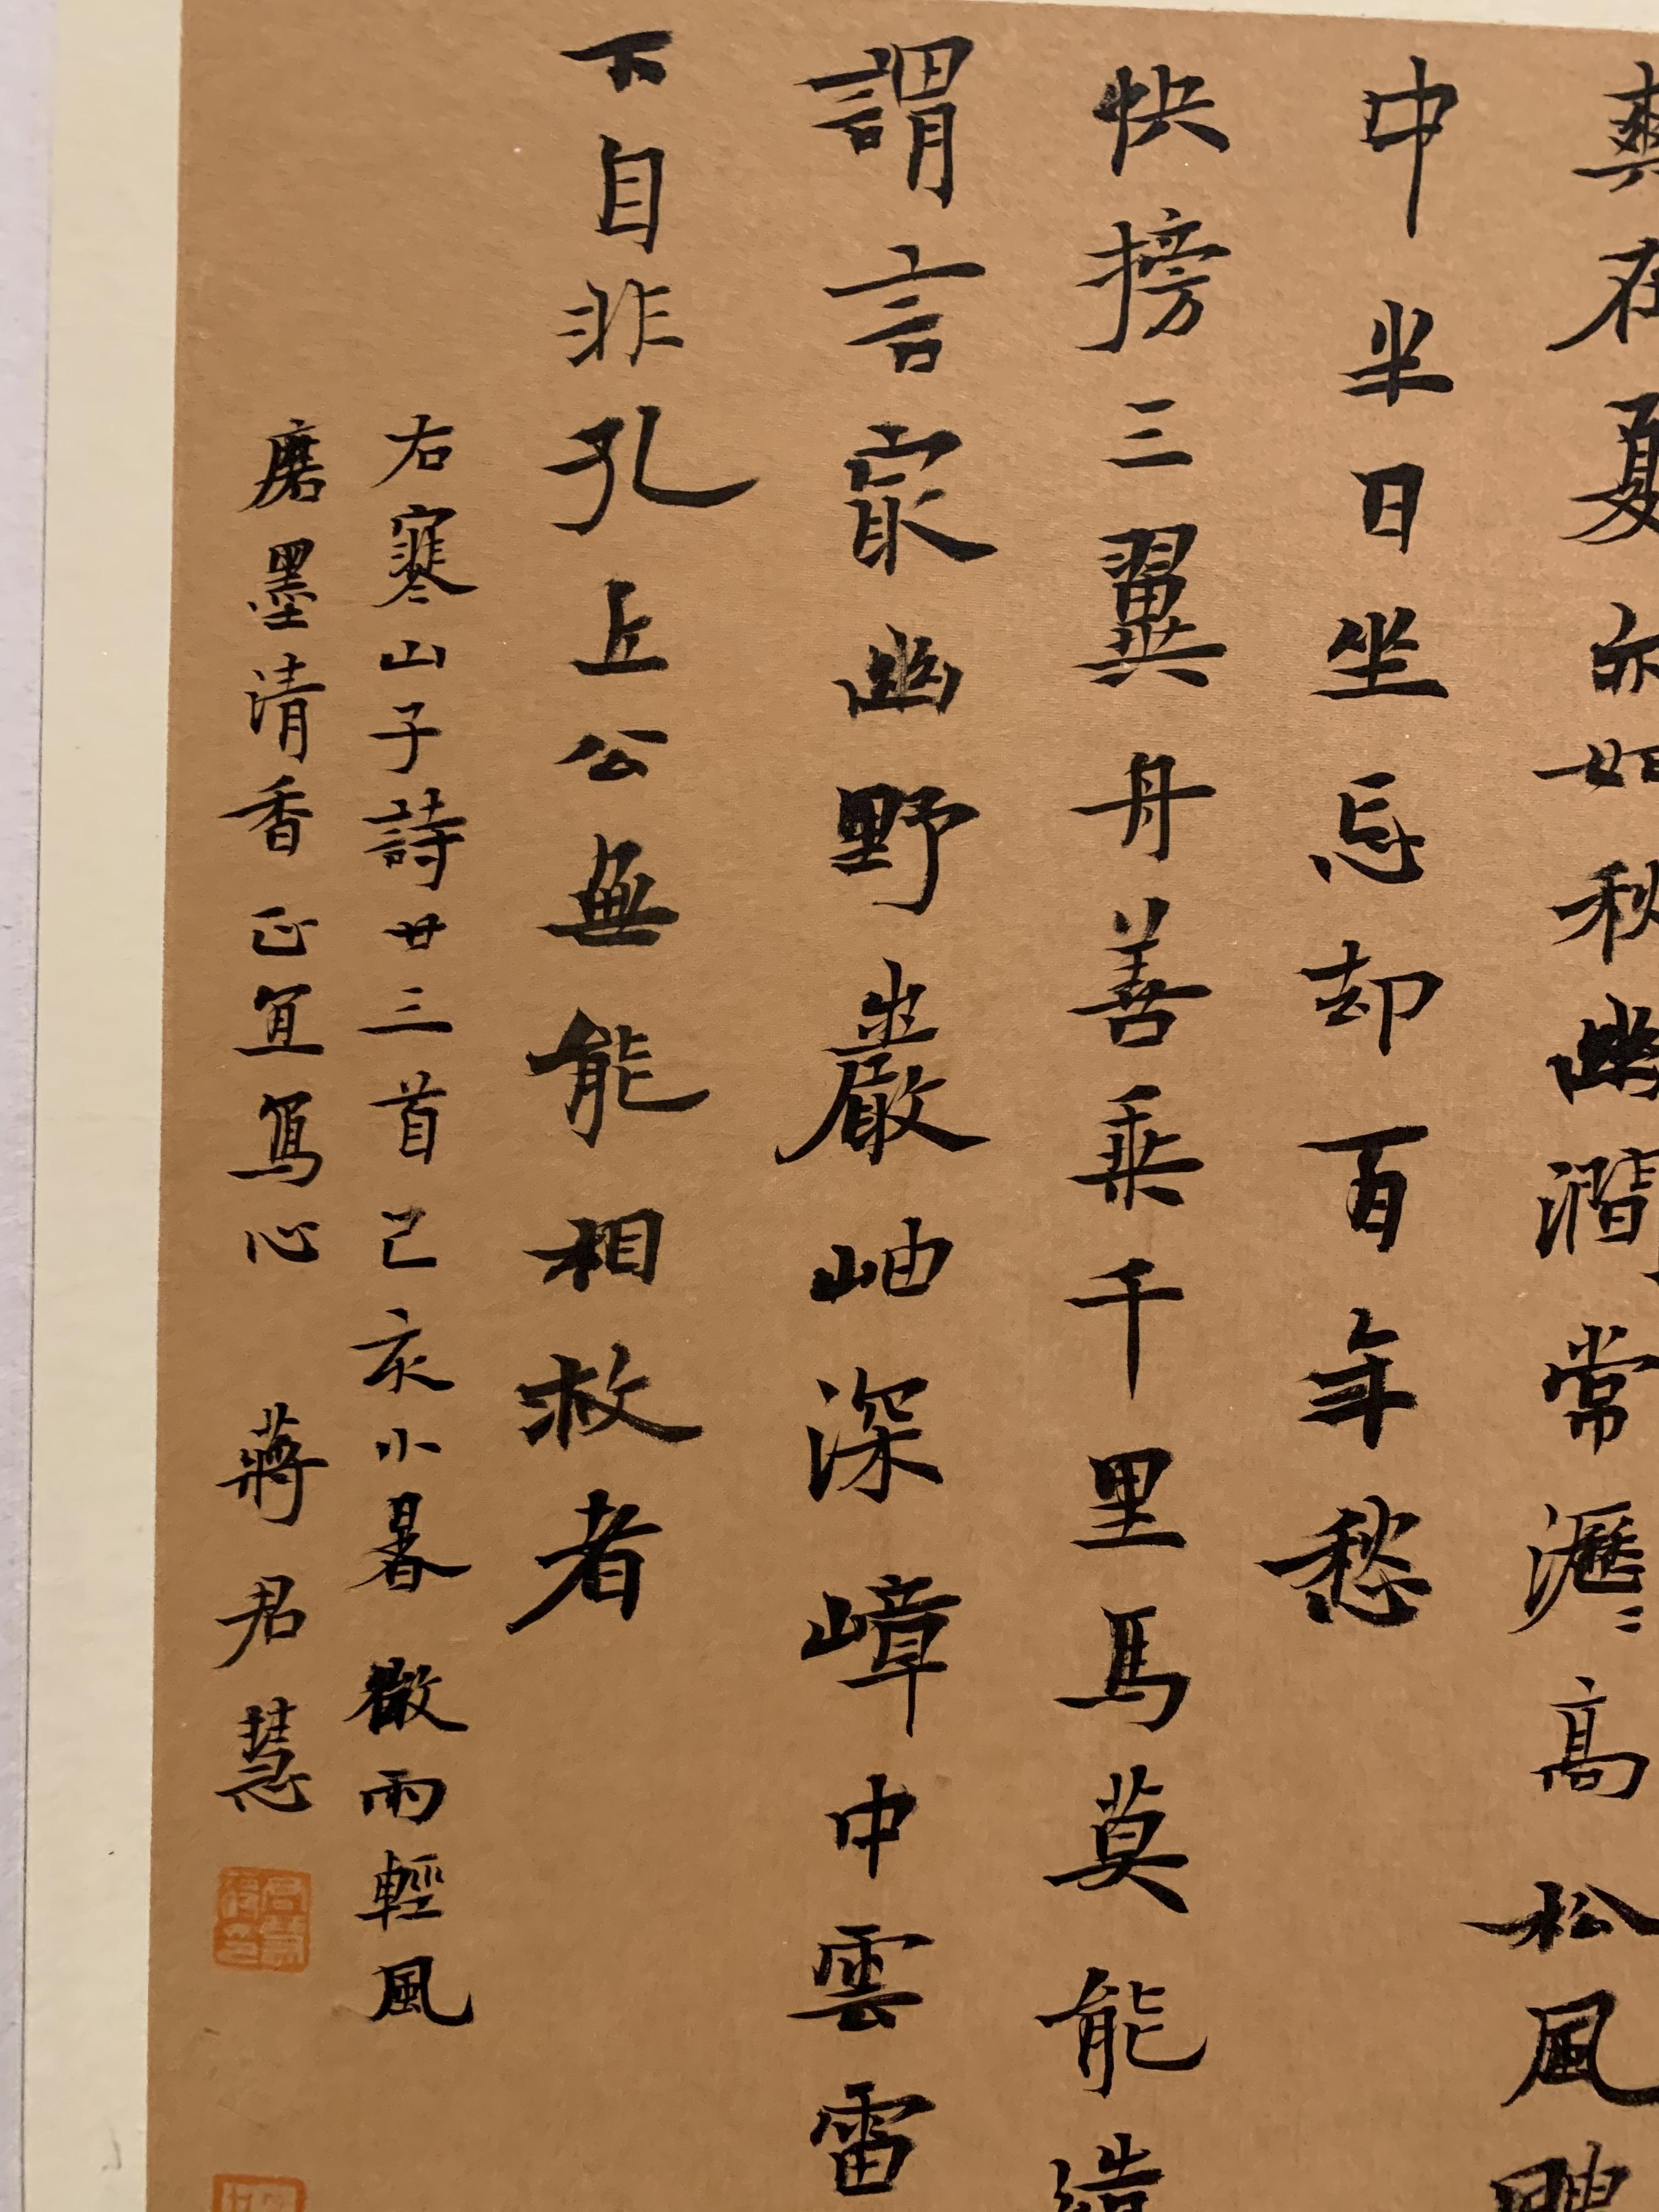 爽在夏亦如秋幽澗常瀝〻高松風
中半日坐忘却百年愁
快搒三翼舟善乘千里馬莫能造
謂言寂幽野巖岫深嶂中雲雷
下自非孔丘公無能相救者
右寒山子詩廿三首己亥小暑微雨輕風
磨墨清香正宜寫心 蔣君慧